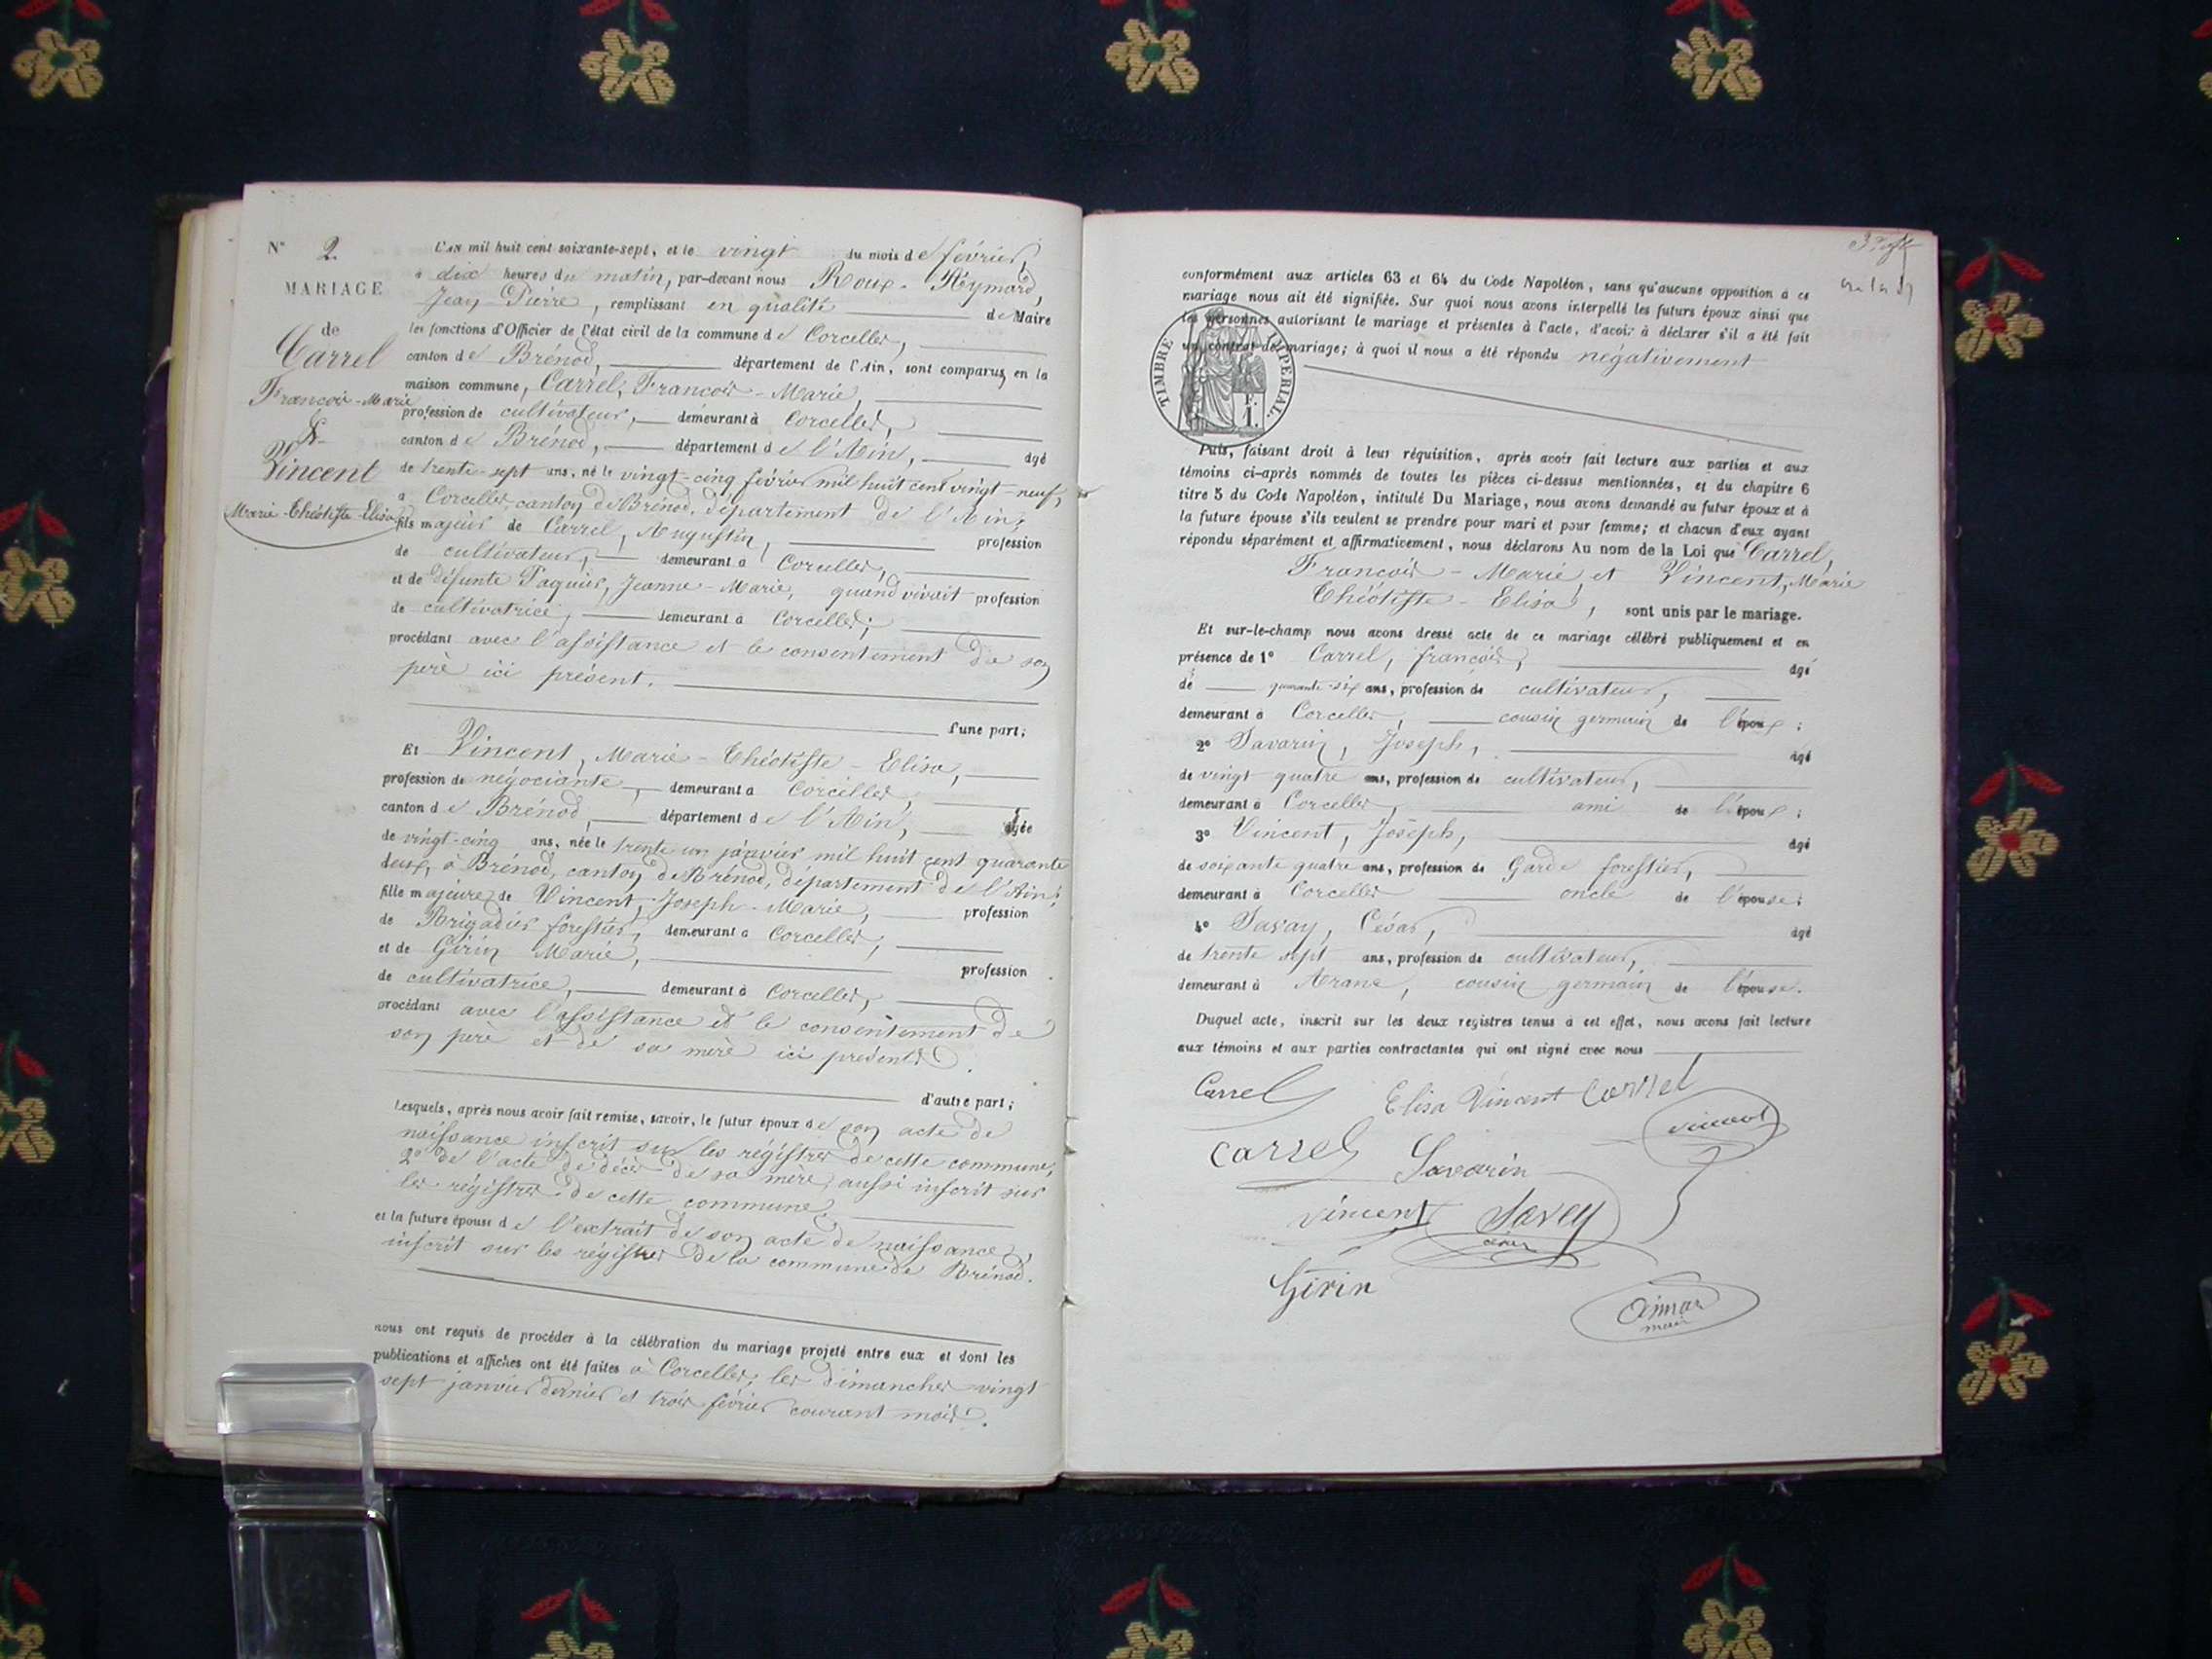 N° 2.
MARIAGE
de
Carrel
François-Marie
&
Vincent
Marie-Théotiste-Elisa
L'AN mil huit cent soixante-sept, et le vingt du mois de février
à dix heures du matin, par-devant nous Roux-Reymard,
Jean-Pierre, remplissant en qualité de Maire
les fonctions d'Officier de l'état civil de la commune de Corcelles,
canton de Brénod, département de l'Ain, sont comparus, en la
maison commune, Carrel, François-Marie,
profession de cultivateur, demeurant à Corcelles,
canton de Brénod, département de l'Ain, âgé
de trente-sept ans, né le vingt-cinq février mil huit cent vingt-neuf,
à Corcelles, canton de Brénod, département de l'Ain;
fils majeur de Carrel, Augustin, profession
de cultivateur, demeurant à Corcelles,
et de défunte Paquier, Jeanne-Marie, quand vivait profession
de cultivatrice, demeurant à Corcelles;
procédant avec l'assistance et le consentement de son
père ici présent.
d'une part;
Et Vincent, Marie-Théotiste-Elisa,
profession de négociante, demeurant à Corcelles,
canton de Brénod, département de l'Ain, âgée
de vingt-cinq ans, née le trente un janvier mil huit cent quarante
deux, à Brénod, canton de Brénod, département de l'Ain;
fille majeure de Vincent, Joseph-Marie, profession
de Brigadier forestier, demeurant à Corcelles,
et de Girin Marie, profession
de cultivatrice, demeurant à Corcelles,
procédant avec l'assistance et le consentement de
son père et de sa mère ici présents.
d'autre part;
Lesquels, après nous avoir fait remise, savoir, le futur époux de son acte de
naissance inscrit sur les régistres de cette commune,
2° de l'acte de décès de sa mère, aussi inscrit sur
les régistres de cette commune,
et la future épouse de l'extrait de son acte de naissance,
inscrit sur les régistres de la commune de Brénod.
nous ont requis de procéder à la célébration du mariage projeté entre eux et dont les
publications et affiches ont été faites à Corcelles, les dimanches vingt
sept janvier dernier et trois février courant mois.
conformément aux articles 63 et 64 du Code Napoléon, sans qu'aucune opposition à ce
mariage nous ait été signifiée. Sur quoi nous avons interpellé les futurs époux ainsi que
les personnes autorisant le mariage et présentes à l'acte, d'avoir à déclarer s'il a été fait
un contrat de mariage; à quoi il nous a été répondu négativement
TIMBRE IMPÉRIAL.
F.
1.
Puis, faisant droit à leur réquisition, après avoir fait lecture aux parties et aux
témoins ci-après nommés de toutes les pièces ci-dessus mentionnées, et du chapitre 6
titre 5 du Code Napoléon, intitulé Du Mariage, nous avons demandé au futur époux et à
la future épouse s'ils veulent se prendre pour mari et pour femme; et chacun d'eux ayant
répondu séparément et affirmativement, nous déclarons Au nom de la Loi que Carrel,
François-Marie, et Vincent, Marie
Théotiste-Elisa, sont unis par le mariage.
Et sur-le-champ nous avons dressé acte de ce mariage célébré publiquement et en
présence de 1° Carrel, françois, âgé
de quarante-six ans, profession de cultivateur,
demeurant à Corcelles, cousin germain de l'époux;
2° Savarin, Joseph, âgé
de vingt quatre ans, profession de cultivateur,
demeurant à Corcelles, ami de l'époux;
3° Vincent, Joseph, âgé
de soixante quatre ans, profession de Garde forestier,
demeurant à Corcelles oncle de l'épouse;
4° Savay, César, âgé
de trente sept ans, profession de cultivateur,
demeurant à Arans, cousin germain de l'épouse.
Duquel acte, inscrit sur les deux registres tenus à cet effet, nous avons fait lecture
aux témoins et aux parties contractantes qui ont signé avec nous
Carrel Elisa Vincent Carrel
vincent
carrel Savarin
vincent Savey
césar
Girin
maire